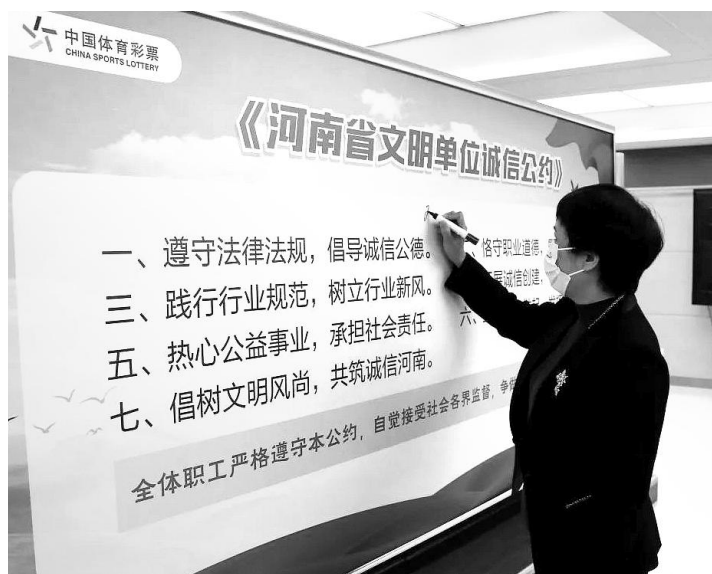 中国体育彩票
CHINA SPORTS LOTTERY
《河南省文明单位诚信公约》
一、遵守法律法规，倡导诚信公德。
、恪守职业道德，
展诚信创建，
三、践行行业规范，树立行业新风。
六、
五、热心公益事业，承担社会责任。
七、倡树文明风尚，共筑诚信河南。
全体职工严格遵守本公约，自觉接受社会各界监督，争做